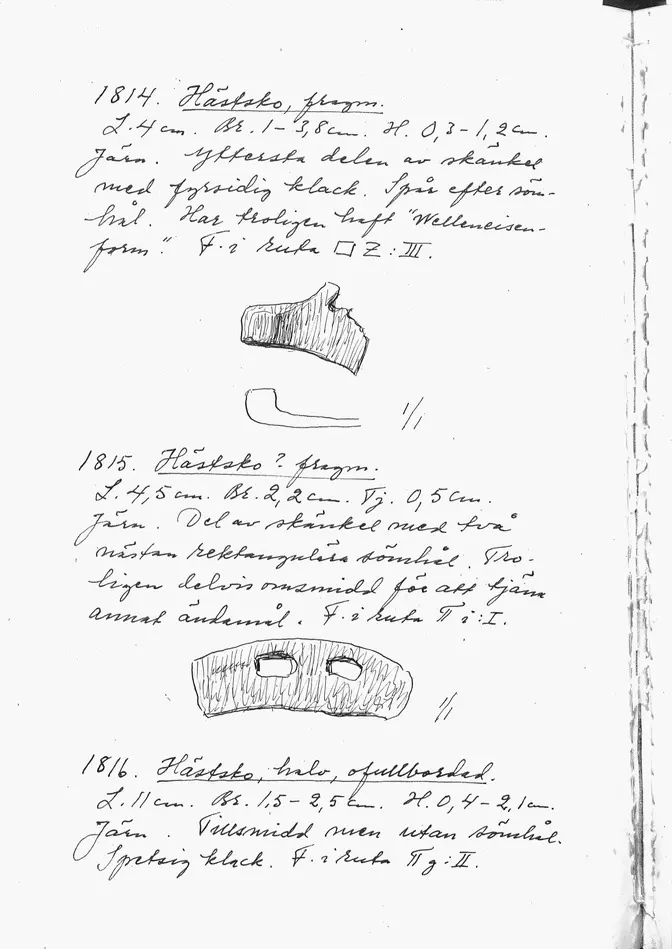 1814. Hästsko, fragm.
L. 4 cm. Br. 1-3,8 cm. H. 0,3-1,2 cm.
Järn. Yttersta delen av skänkel
med fyrsidig klack. Spår efter söm-
hål. Har troligen haft "Welleneisen-
form". F. i ruta □ Z : III.
1/1
1815. Hästsko? fragm.
L. 4,5 cm. Br. 2,2 cm. Tj. 0,5 cm.
Järn. Del av skänkel med två
nästan rektangulära sömhål. Tro-
ligen delvis omsmidd för att tjäna
annat ändamål. F. i ruta π i : I.
1/1
1816. Hästsko, halv, ofullbordad.
L. 11 cm. Br. 1,5-2,5 cm. H. 0,4-2,1 cm.
Järn. Tillsmidd men utan sömhål.
Spetsig klack. F. i ruta π g : II.